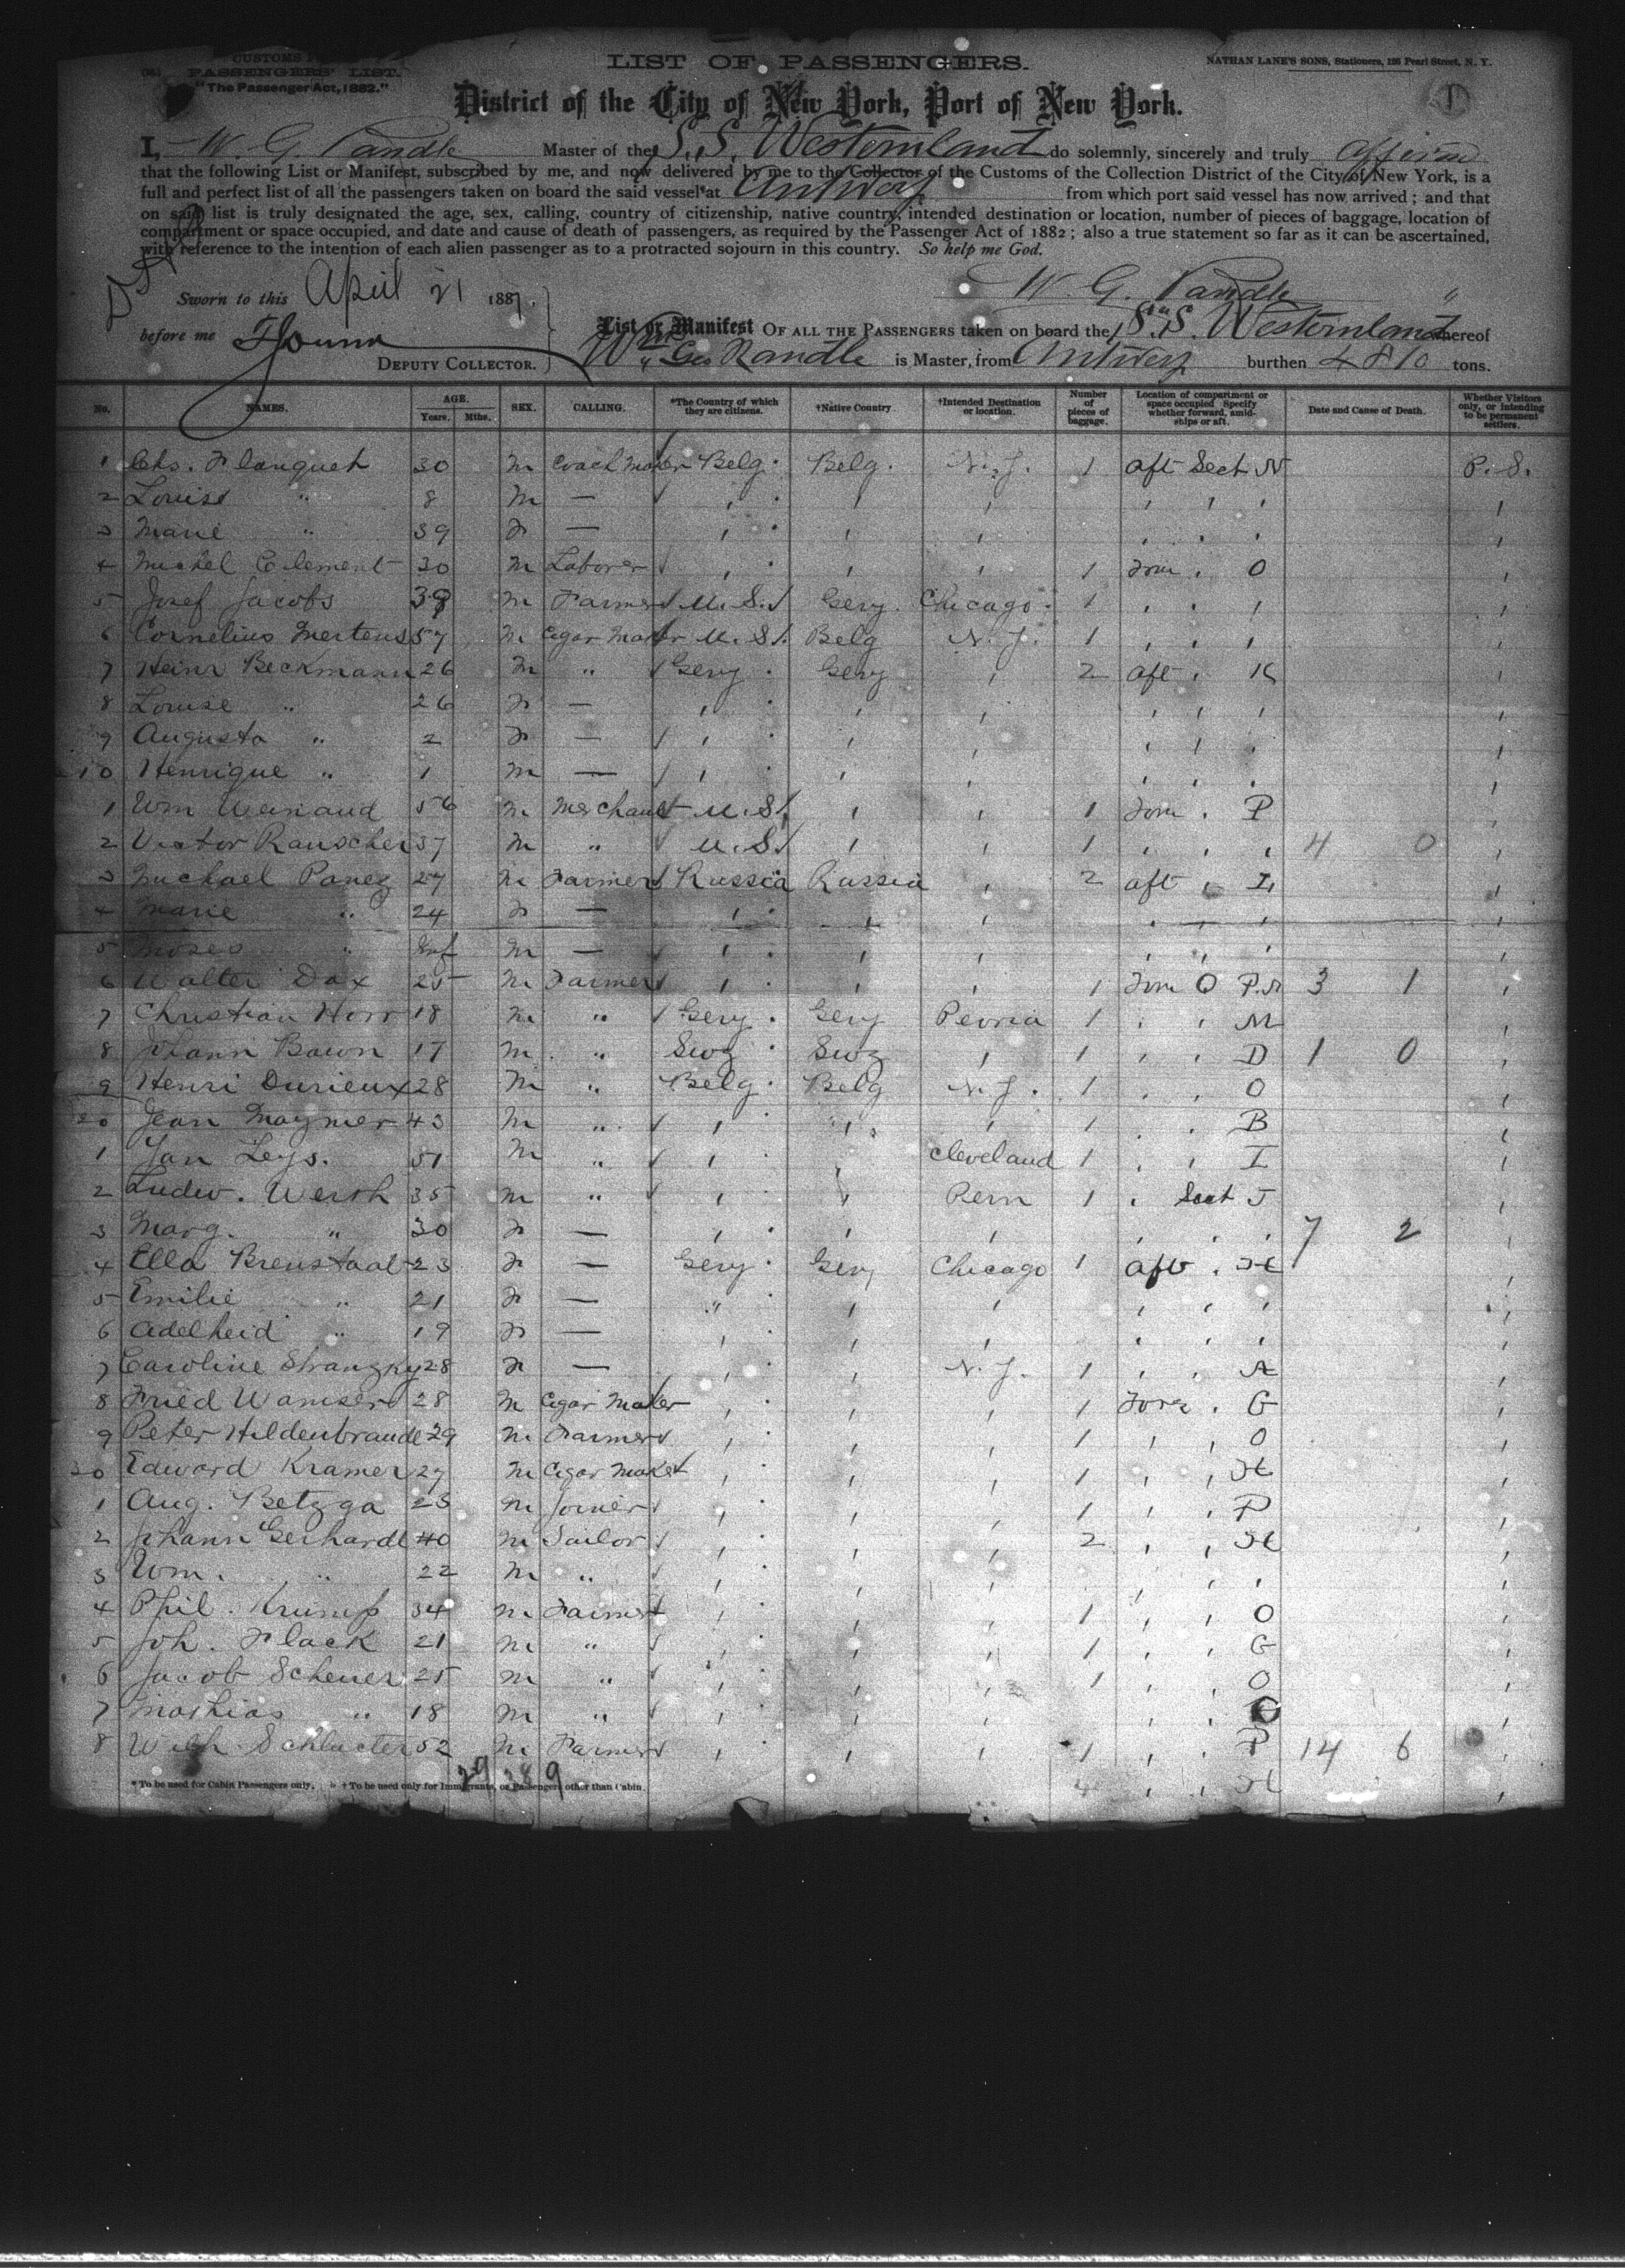 CUSTOMS
PASSENGERS' LIST.
"The Passenger Act, 1882."
LIST OF PASSENGERS.
NATHAN LANE'S SONS, Stationers, 126 Pearl Street, N. Y.
District of the City of New York, Port of New York.
I, W. G. Randle Master of the S.S. Westernland do solemnly, sincerely and truly affirm
that the following List or Manifest, subscribed by me, and now delivered by me to the Collector of the Customs of the Collection District of the City of New York, is a
full and perfect list of all the passengers taken on board the said vessel at Antwerp from which port said vessel has now arrived; and that
on said list is truly designated the age, sex, calling, country of citizenship, native country, intended destination or location, number of pieces of baggage, location of
compartment or space occupied, and date and cause of death of passengers, as required by the Passenger Act of 1882; also a true statement so far as it can be ascertained,
with reference to the intention of each alien passenger as to a protracted sojourn in this country. So help me God.
W. G. Randle
Sworn to this April 21 1887.
before me
DEPUTY COLLECTOR.
List or Manifest OF ALL THE PASSENGERS taken on board the S.S. Westernland whereof
Wm Geo Randle is Master, from Antwerp burthen 4810 tons.
No. NAMES. AGE. Years. Mths. SEX. CALLING. *The Country of which they are citizens. †Native Country. †Intended Destination or location. Number of pieces of baggage. Location of compartment or space occupied. Specify whether forward, amidships or aft. Date and Cause of Death. Whether Visitors only, or intending to be permanent settlers.
1 Chs. Flanquet 30 m Coach Maker Belg. Belg. N.J. 1 aft Sect N P.S.
2 Louis " 8 m —
3 Marie " 39 f —
4 Michel Clement 30 m Laborer 1 forw. O
5 Josef Jacobs m Farmer U.S. Gery. Chicago 1
6 Cornelius Mertens 57 m Cigar Maker U.S. Belg N.J. 1
7 Heinr Beckmann 26 m " Gery Gery 2 aft K
8 Louise " 26 f —
9 Augusta " 2 f —
10 Henrique " 1 m —
1 Wm Weinand 56 m Merchant U.S. 1 forw. P
2 Victor Rauscher 37 m " U.S. 1 4 0
3 Michael Paneg 27 m Farmer Russia Russia 2 aft I
4 Marie " 24 f —
5 Moses " Inf m —
6 Walter Dax 25 m Farmer 1 forw 3 1
7 Christian Horr 18 m " Gery Gery Peoria 1 M
8 Johann Bawn 17 m " Swz Swz 1 D 1 0
9 Henri Durieux 28 m " Belg Belg N.J. 1 O
20 Jean Maymer 43 m " 1 B
1 Jan Leys. 51 m " Cleveland 1 I
2 Ludw. Werth 35 m " 1 Sect J
3 Marg. " 30 f — 7 2
4 Ella Brenstaal 23 f — Gery Gery Chicago 1 aft H
5 Emilie " 21 f — "
6 Adelheid " 19 f —
7 Caroline Stranzky 28 f — N.J. 1 A
8 Fried Wamser 28 m Cigar Maker 1 Forw. G
9 Peter Hildenbrandt 29 m Farmer 1 O
30 Edward Kramer 27 m Cigar Maker 1 H
1 Aug. Betzga 23 m Joiner 1 P
2 Johann Gerhardt 40 m Sailor 2 H
3 Wm. " 22 m "
4 Phil. Krump 34 m Farmer 1 O
5 Joh. Flack 21 m " 1 G
6 Jacob Scheuer 25 m " 1 O
7 Mathias " 18 m "
8 Wilh Schlueter 52 m Farmer 1 P 14 6
29 9 H
* To be used for Cabin Passengers only. † To be used only for Immigrants, or Passengers other than Cabin.